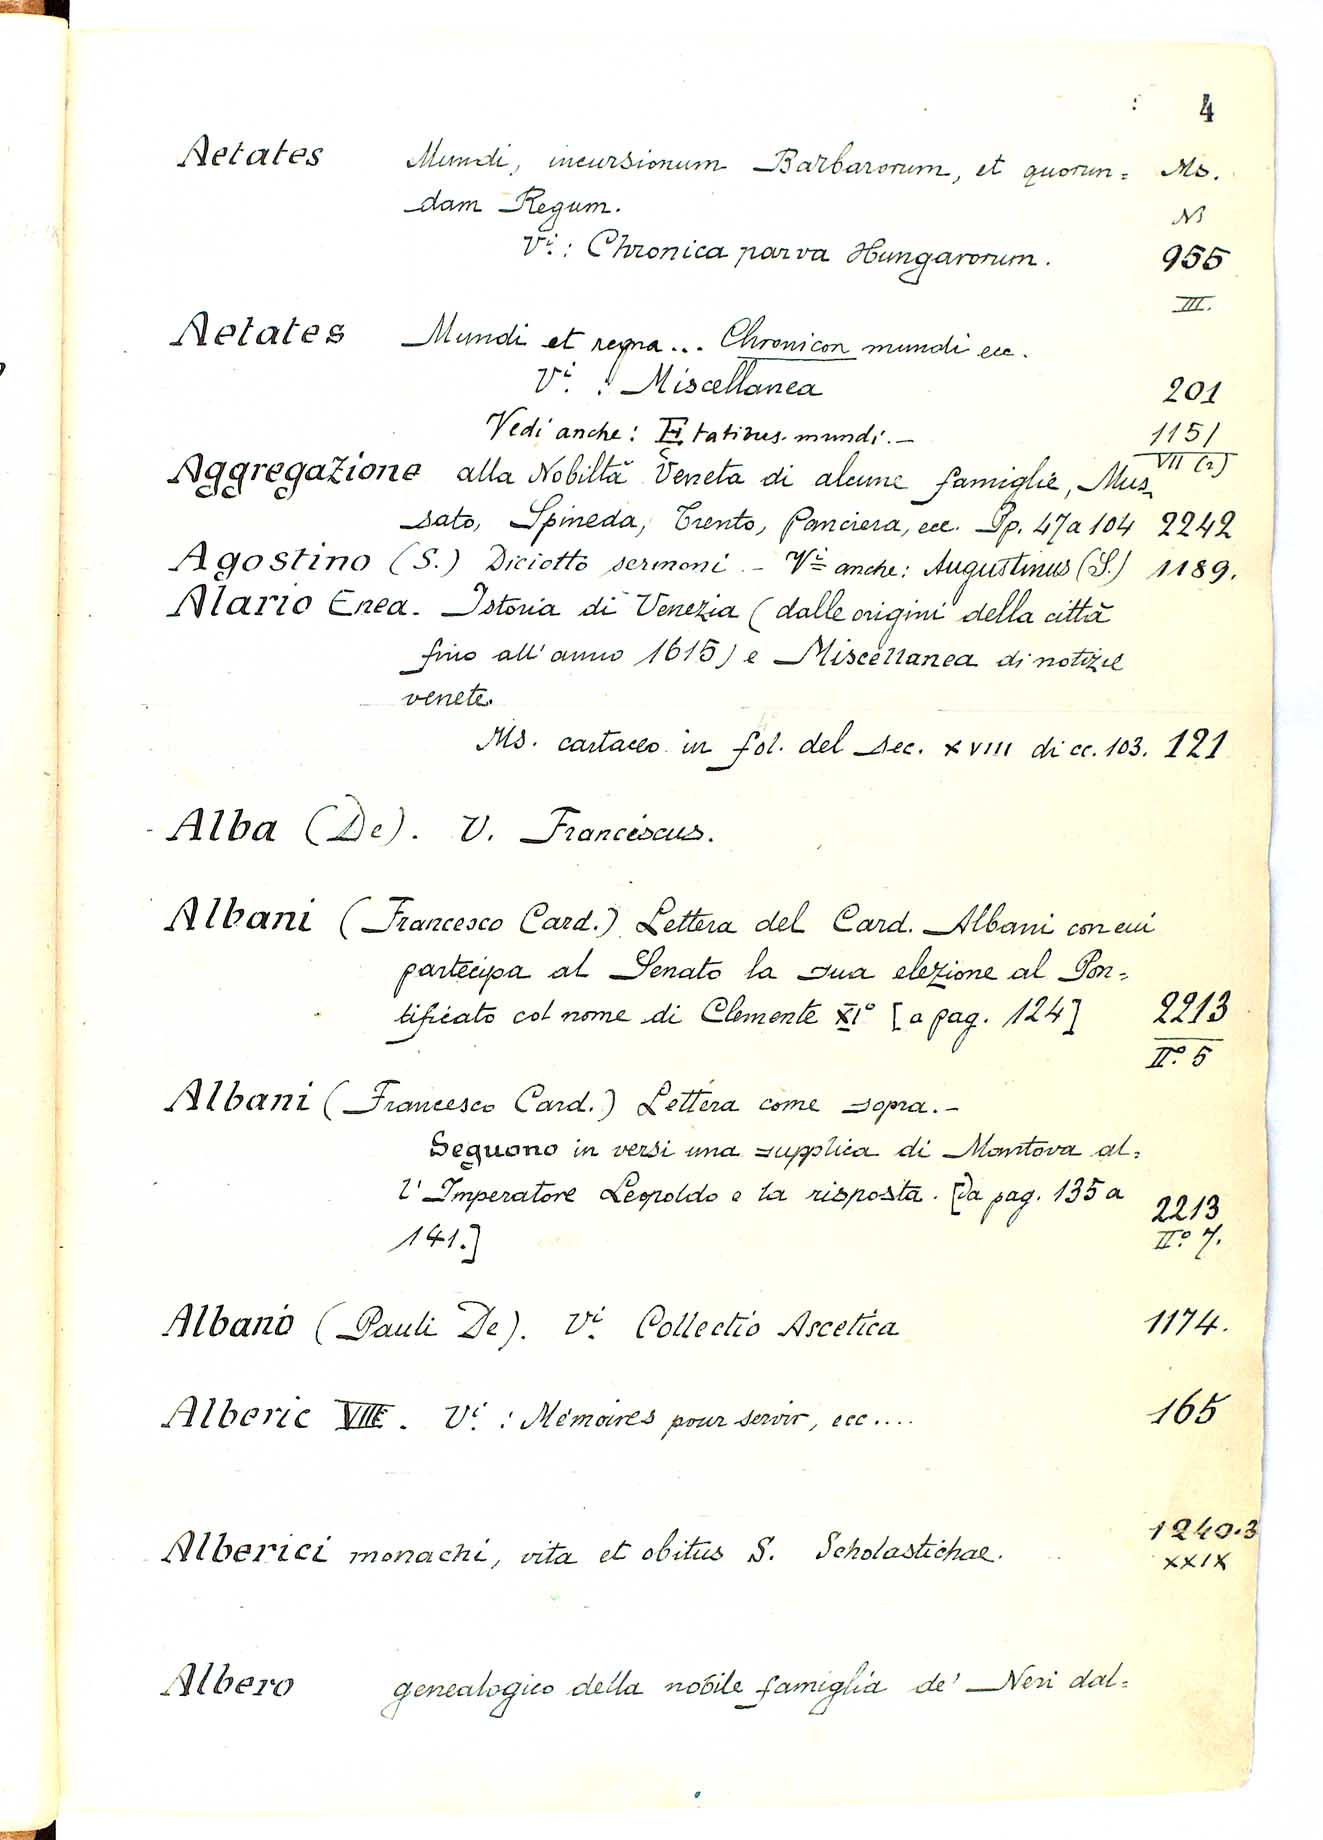 4
Aetates Mundi, incursionum Barbarorum, et quorun= Ms.
dam Regum. N
Vi.: Chronica parva Hungarorum. 955
III.
Aetates Mundi et regna... Chronicon mundi ecc.
Vi. : Miscellanea 201
Vedi anche: Etatibus mundi.— 1151
VII (2)
Aggregazione alla Nobiltà Veneta di alcune famiglie, Mus=
sato, Spineda, Trento, Panciera, ecc. Pp. 47 a 104 2242
Agostino (S.) Diciotto sermoni. — Vi anche: Augustinus (S.) 1189.
Alario Enea. Istoria di Venezia (dalle origini della città
fino all'anno 1615) e Miscellanea di notizie
venete.
Ms. cartaceo in fol. del sec. XVIII di cc. 103. 121
Alba (De). V. Franciscus.
Albani (Francesco Card.) Lettera del Card. Albani con cui
partecipa al Senato la sua elezione al Pon=
tificato col nome di Clemente XI° [a pag. 124] 2213
II°. 5
Albani (Francesco Card.) Lettera come sopra.—
Seguono in versi una supplica di Mantova al=
l'Imperatore Leopoldo e la risposta. [Da pag. 135 a 2213
141.] II°. 7.
Albano (Pauli De). Vi. Collectio Ascetica 1174.
Alberic VIII. Vi.: Mémoires pour servir, ecc.... 165
Alberici monachi, vita et obitus S. Scholastichae. 1240.3
XXIX
Albero genealogico della nobile famiglia de' Neri dal=